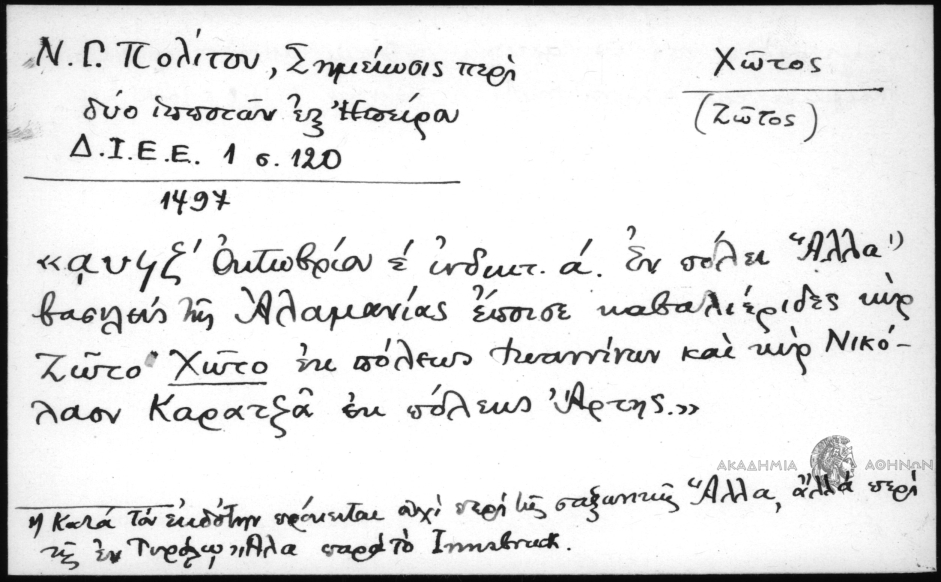 Ν. Γ. Πολίτου, Σημείωσις περὶ
δύο ἱπποτῶν ἐξ Ἠπείρου
Δ.Ι.Ε.Ε. 1 σ. 120
1497
Χῶτος
(Ζῶτος)
«αυϟξ´ Ὀκτωβρίου έ ἰνδικτ. ά. Ἐν πόλει Ἄλλα¹⁾
βασιλεὺς τῆς Ἀλαμανίας ἔποισε καβαλιέριδες κὺρ
Ζῶτο Χῶτο ἐκ πόλεως Ἰωαννίνων καὶ κὺρ Νικό-
λαον Καρατζᾶ ἐκ πόλεως Ἄρτης.»
ΑΚΑΔΗΜΙΑ ΑΘΗΝΩΝ
1) Κατὰ τὸν ἐκδότην πρόκειται οὐχὶ περὶ τῆς σαξωνικῆς Ἄλλα, ἀλλὰ περὶ
τῆς ἐν Τυρόλῳ Ἄλλα παρὰ τὸ Innsbruck.